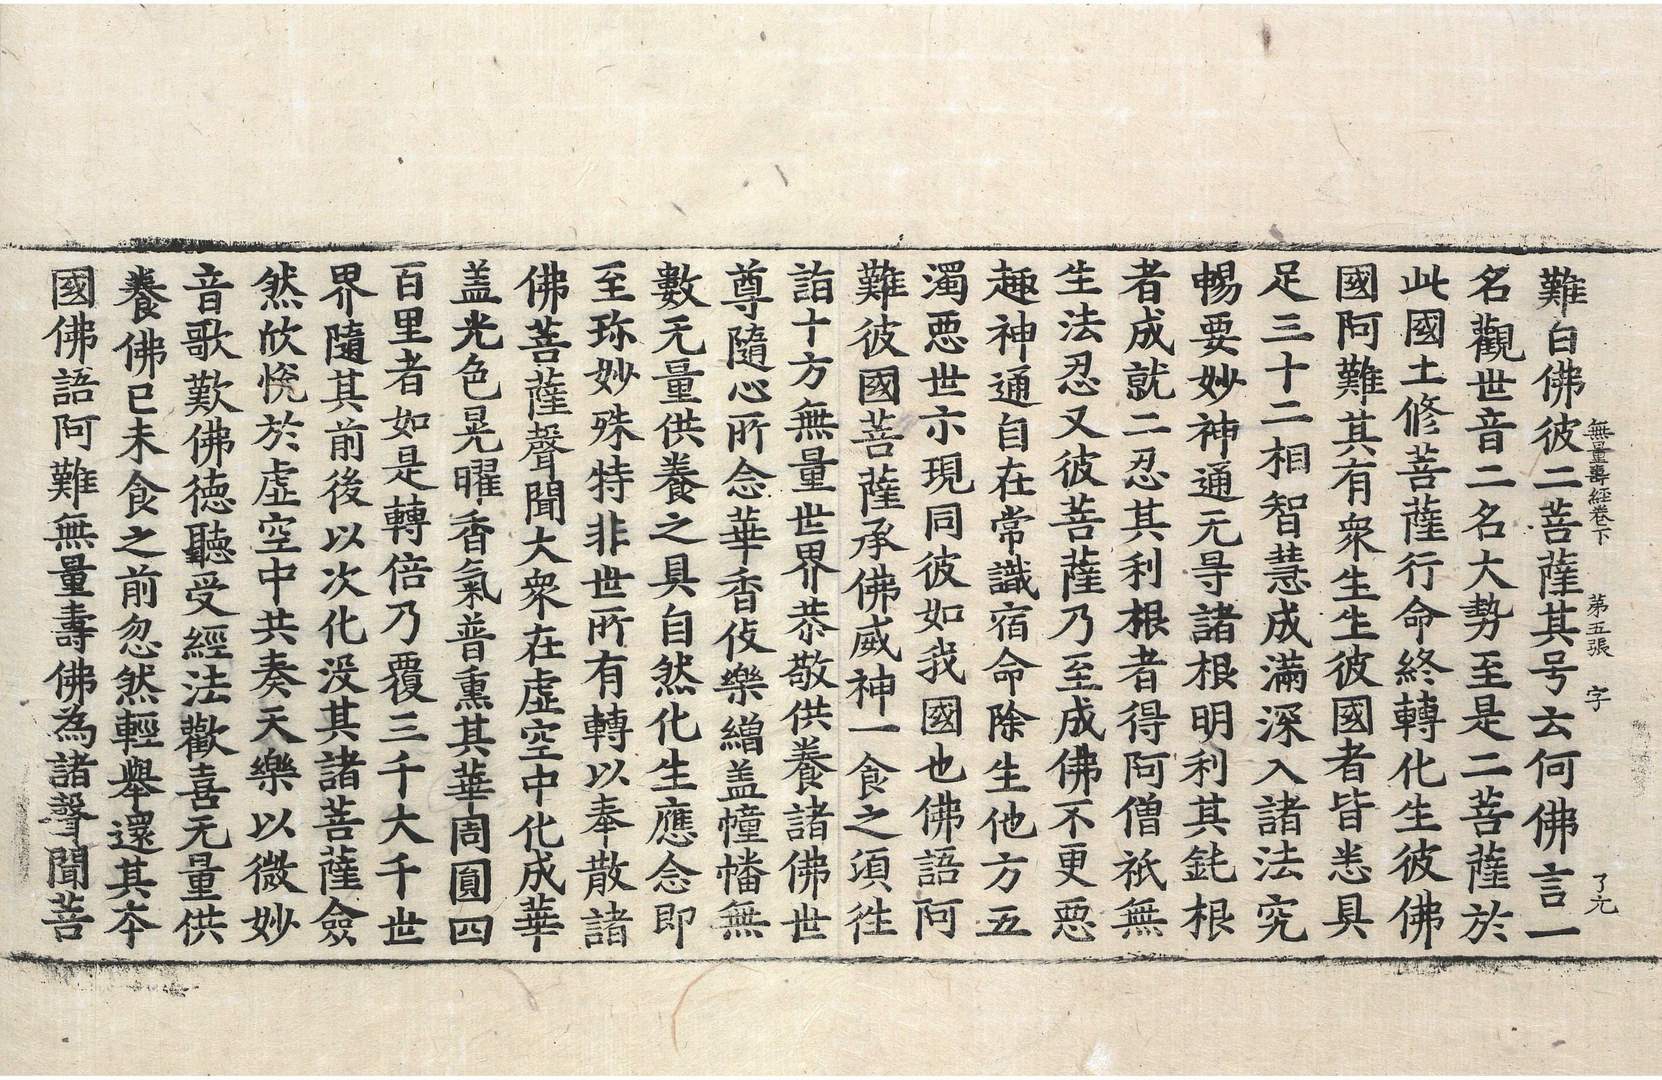 無量壽經卷下　第五張　字　了元
難白佛彼二菩薩其号云何佛言一
名觀世音二名大勢至是二菩薩於
此國土修菩薩行命終轉化生彼佛
國阿難其有衆生生彼國者皆悉具
足三十二相智慧成滿深入諸法究
暢要妙神通无㝵諸根明利其鈍根
者成就二忍其利根者得阿僧祇無
生法忍又彼菩薩乃至成佛不更惡
趣神通自在常識宿命除生他方五
濁惡世示現同彼如我國也佛語阿
難彼國菩薩承佛威神一食之須徃
詣十方無量世界恭敬供養諸佛世
尊隨心所念華香伎樂繒盖幢幡無
數无量供養之具自然化生應念即
至珎妙殊特非世所有轉以奉散諸
佛菩薩聲聞大衆在虛空中化成華
盖光色晃曜香氣普熏其華周圓四
百里者如是轉倍乃覆三千大千世
界隨其前後以次化没其諸菩薩僉
然欣恱於虛空中共奏天樂以微妙
音歌歎佛德聽受經法歡喜无量供
養佛已未食之前忽然輕舉還其本
國佛語阿難無量壽佛為諸聲聞菩